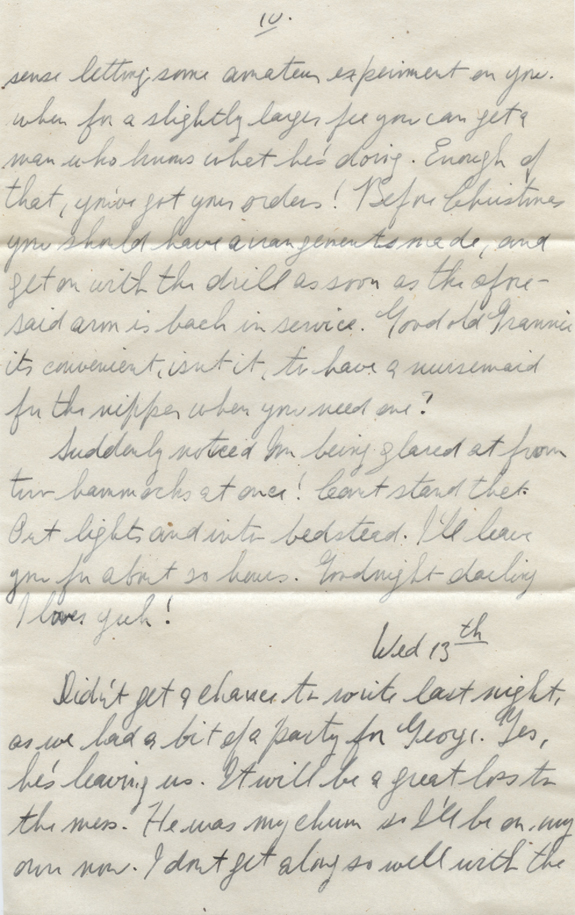 10.
sense letting some amateur experiment on you.
when for a slightly larger fee you can get a
man who knows what he's doing. Enough of
that, you've got your orders! Before Christmas
you should have arrangements made, and
get on with the drill as soon as the afore-
said arm is back in service. Good old Grannie
its convenient, isn't it, to have a nursemaid
for the nipper when you need one?
Suddenly noticed I'm being glared at from
two hammocks at once! Can't stand that.
Out lights and into bedstead. I'll leave
you for about 20 hours. Goodnight darling
I loves yuh!
Wed 13th
Didn't get a chance to write last night,
as we had a bit of a party for George. Yes,
he's leaving us. It will be a great loss to
the mess. He was my chum so I'll be on my
own now. I don't get along so well with the